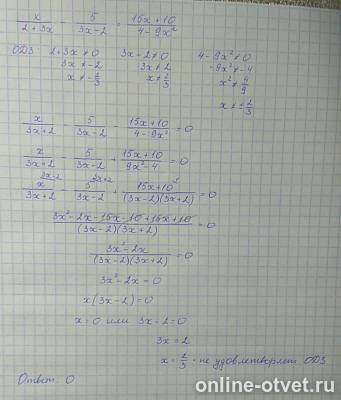 x/(2+3x) - 5/(3x-2) = (15x+10)/(4-9x²)
ОДЗ: 2+3x≠0 3x-2≠0 4-9x²≠0
3x≠-2 3x≠2 -9x²≠-4
x≠-2/3 x≠2/3 x²≠4/9
x≠±2/3
x/(3x+2) - 5/(3x-2) - (15x+10)/(4-9x²) = 0
x/(3x+2) - 5/(3x-2) + (15x+10)/(9x²-4) = 0
x^(3x-2)/(3x+2) - 5^(3x+2)/(3x-2) + (15x+10)^1/((3x-2)(3x+2)) = 0
(3x²-2x-15x-10+15x+10)/((3x-2)(3x+2)) = 0
(3x²-2x)/((3x-2)(3x+2)) = 0
3x²-2x=0
x(3x-2)=0
x=0 или 3x-2=0
3x=2
x=2/3 - не удовлетворяет ОДЗ
Ответ: 0
online-otvet.ru